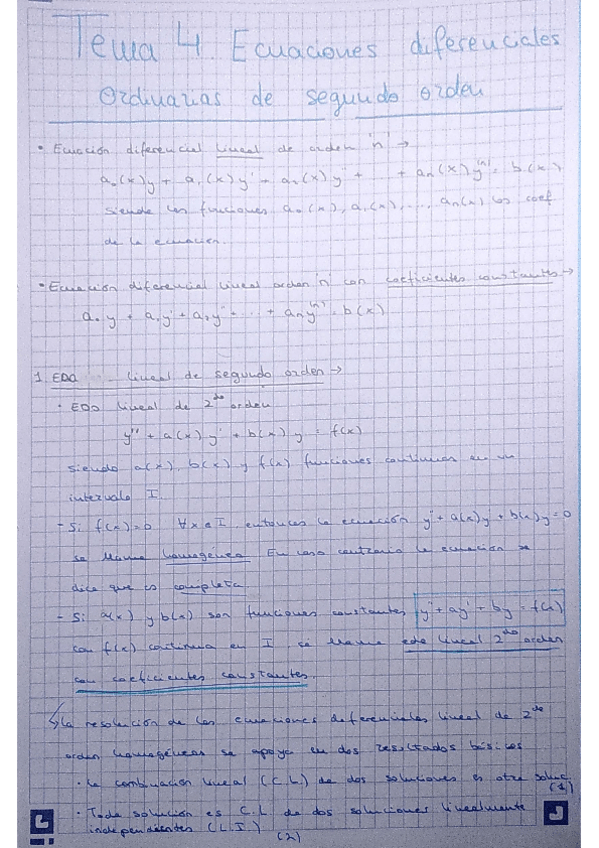 Tema 4. Ecuaciones diferenciales
Ordinarias de segundo orden
• Ecuación diferencial lineal de orden 'n' →
a₀(x)y + a₁(x)y' + a₂(x)y + + aₙ(x)y⁽ⁿ⁾ = b(x)
siendo las funciones a₀(x), a₁(x), ..., aₙ(x) los coef
de la ecuación.
• Ecuación diferencial lineal orden 'n' con coeficientes constantes →
a₀y + a₁y' + a₂y'' + ... + aₙy⁽ⁿ⁾ = b(x)
1. EDO lineal de segundo orden →
· EDO lineal de 2do orden
y'' + a(x)y' + b(x)y = f(x)
siendo a(x), b(x) y f(x) funciones continuas en un
intervalo I.
- Si f(x)=0 ∀x∈I, entonces la ecuación y'' + a(x)y' + b(x)y=0
se llama homogénea. En caso contrario la ecuación se
dice que es completa.
- Si a(x) y b(x) son funciones constantes, y'' + ay' + by = f(x)
con f(x) continua en I, se llama edo lineal 2do orden
con coeficientes constantes.
↳ la resolución de las ecuaciones diferenciales lineal de 2do
orden homogéneas se apoya en dos resultados básicos
· La combinación lineal (C.L) de dos soluciones es otra soluc.
(1)
· Toda solución es C.L. de dos soluciones linealmente
independientes (L.I.)
(2)